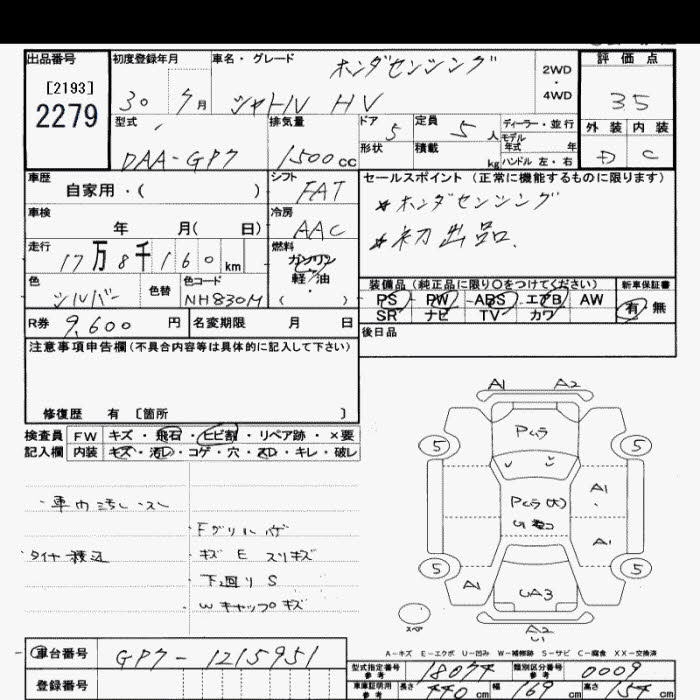 出品番号 初度登録年月 車名・グレード ホンダセンシング 2WD・4WD 評価点
[2193]
2279
30 7月 シャトル HV 35
型式 排気量 ドア 5 定員 5人 ディーラー・並行 外装 内装
形状 積載 kg モデル年式 年
DAA-GP7 1500cc ハンドル 左・右 D C
車歴 シフト セールスポイント (正常に機能するものに限ります)
自家用・( ) FAT
＊ホンダセンシング
車検 冷房
年 月( 日) AAC
＊初出品.
走行 燃料
17万8千160km ガソリン
軽・油
( ・ )
色 色替 色コード 装備品 (純正品に限り○をつけてください) 新車保証書
シルバー NH830M PS PW ABS エアB AW 有・無
SR ナビ TV カワ
R券 9,600円 名変期限 月 日
後日品
注意事項申告欄(不具合内容等は具体的に記入して下さい)
修復歴 有 [箇所 ]
検査員 FW キズ・飛石・ヒビ割・リペア跡・×要
記入欄 内装 キズ・汚レ・コゲ・穴・スレ・キレ・破レ
・車内汚レ・スレ
・Fグリルハゲ
・タイヤ積込 ・キズ E スリキズ
・下回り S
・Wキャップキズ
A1 A2
Pムラ
5 5
Pムラ(大)
A1
A1
5 5
A1
UA3
スペア
A2
U1
A-キズ E-エクボ U-凹み W-補修跡 S-サビ C-腐食 XX-交換済
車台番号 GP7-1215951
型式指定番号 参考 18074 類別区分番号 参考 0009
登録番号
車庫証明用 参考 長さ 440cm 幅 169cm 高さ 154cm